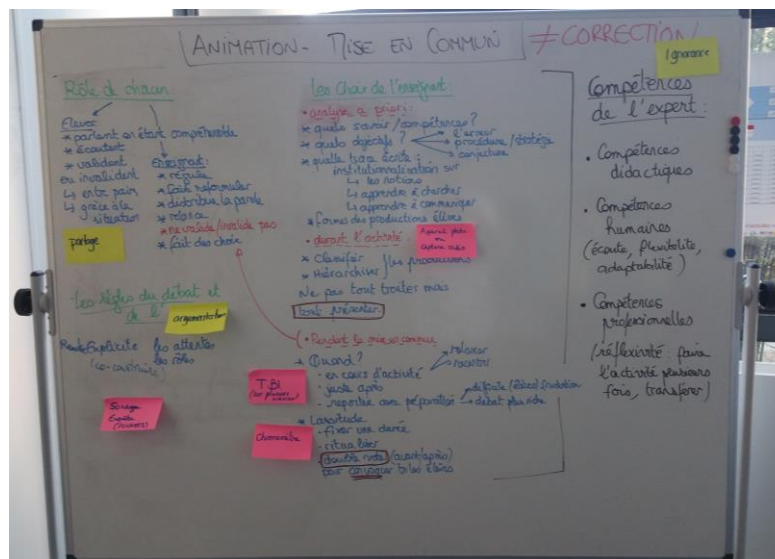 ANIMATION - MISE EN COMMUN
≠ CORRECTION
Ignorance
Rôle de chacun
Elèves
* parlent en étant compréhensible
* écoutent
* valident
ou invalident
↳ entre pairs
↳ grâce à la
situation
partage
Enseignant :
* régule
* fait reformuler
* distribue la parole
* relance
* ne valide/invalide pas
* fait des choix
Les règles du débat et
de l'
argumentation
Rendre Explicite les attentes
les rôles
(co-construire)
Sondage
Les choix de l'enseignant :
• analyse a priori :
* quels savoir/compétences ?
* quels objectifs ? → l'erreur
→ procédure/stratégie
→ conjecture
* quelle trace écrite :
institutionnalisation sur
↳ les notions
↳ apprendre à chercher
↳ apprendre à communiquer
* formes des productions élèves
• durant l'activité
Appareil photo
ou
capture vidéo
* Classifier
* Hiérarchiser } les productions
Ne pas tout traiter mais
tout présenter
• Pendant la mise en commun
* Quand ? → relancer
- en cours d'activité
- juste après
- reportée avec préparation → difficulté (élèves) frustration
→ débat plus riche
TBI
* Lassitude
- fixer une durée
- ritualiser
- double vote (avant/après)
pour convoquer ts les élèves
Chronomètre
Compétences
de l'expert :
• Compétences
didactiques
• Compétences
humaines
(écoute, flexibilité,
adaptabilité)
• Compétences
professionnelles
(réflexivité : faire
l'activité plusieurs
fois, transférer)